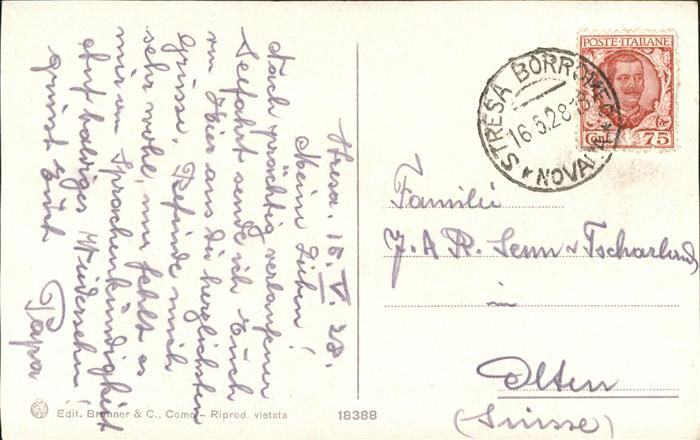 Stresa. 15. V. 28.
Meine Lieben!
Nach prächtig verlaufener
Seefahrt sende ich Euch
von Hier aus die herzlichsten
Grüsse. Befinde mich
sehr wohl, nur fehlt es
mir an Sprachenkundigkeit
Auf baldiges Wiedersehn
grüsst Euch
Papa
POSTE·ITALIANE
CENT 75
STRESA BORROMEO
16.5.28
NOVARA
Familie
J. A. R. Senn v Tscharland
in
Olten
(Suisse)
Edit. Brunner & C., Como - Riprod. vietata
18388